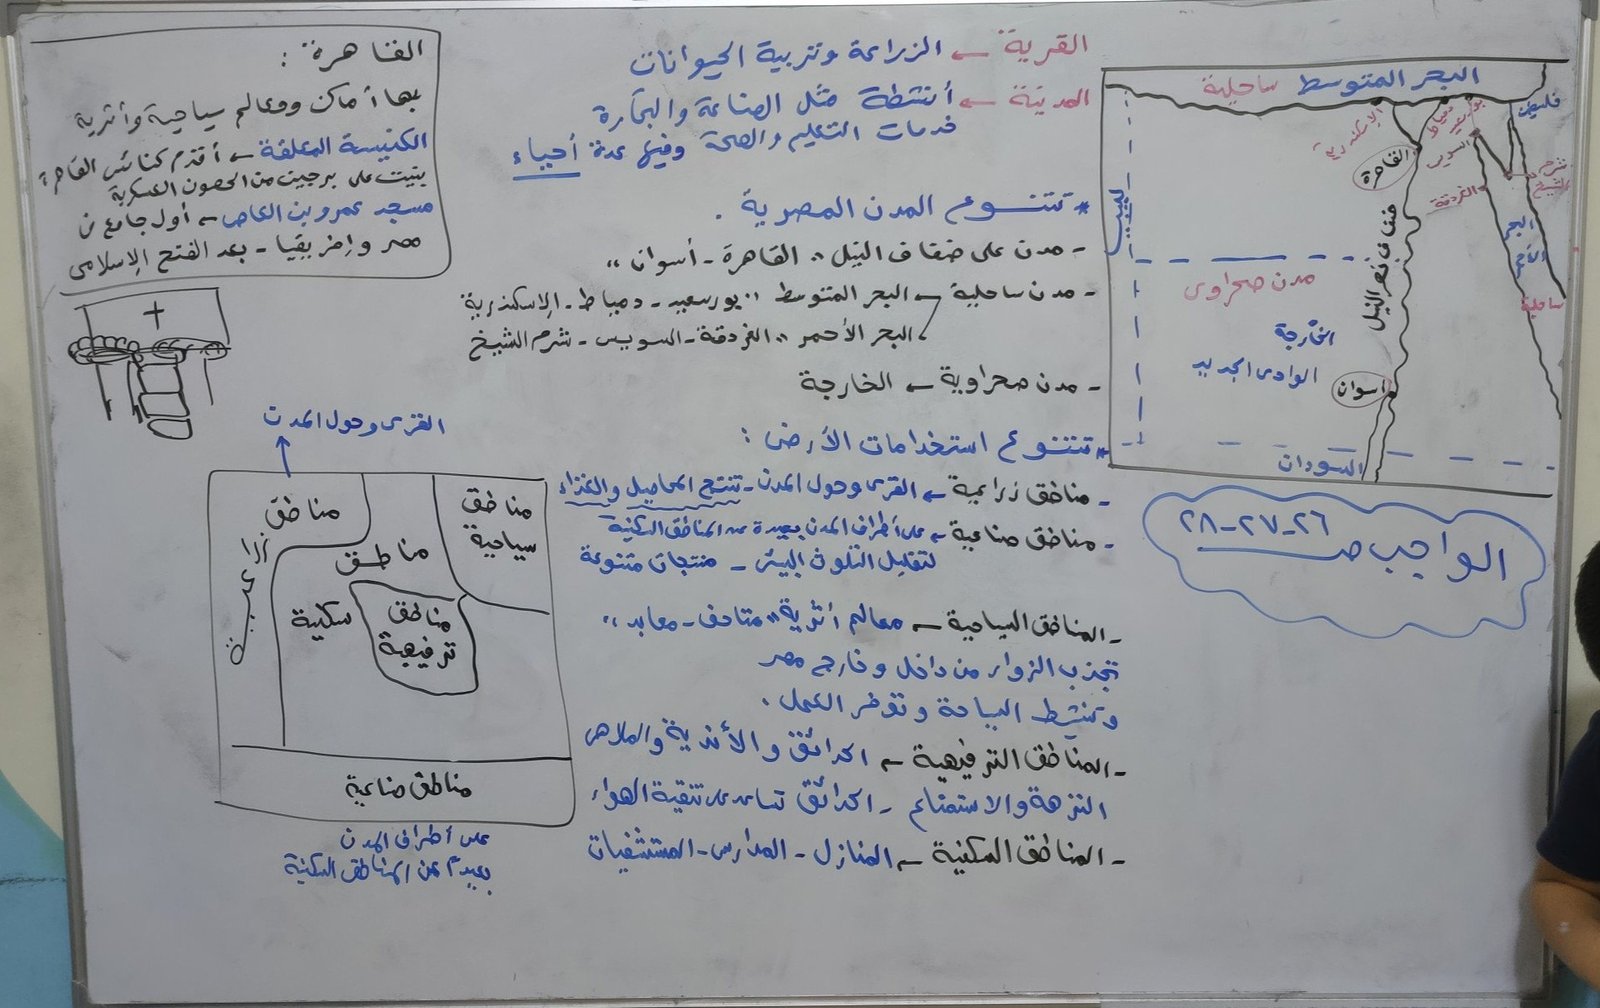 القرية ← الزراعة وتربية الحيوانات
المدينة ← أنشطة مثل الصناعة والتجارة
خدمات التعليم والصحة وفيها عدة أحياء
* تتنوع المدن المصرية .
- مدن على ضفاف النيل " القاهرة - أسوان "
- مدن ساحلية ← البحر المتوسط " بورسعيد - دمياط - الإسكندرية
البحر الأحمر " الغردقة - السويس - شرم الشيخ
- مدن صحراوية ← الخارجة
* تتنوع استخدامات الأرض :
- مناطق زراعية ← القرى وحول المدن - تنتج المحاصيل والغذاء
- مناطق صناعية ← على أطراف المدن بعيدة عن المناطق السكنية
لتقليل التلوث البيئى - منتجات متنوعة
- المناطق السياحية ← معالم أثرية " متاحف - معابد "
تجذب الزوار من داخل وخارج مصر
وتنشط السياحة وتوفر العمل .
- المناطق الترفيهية ← الحدائق والأندية والملاهى
النزهة والاستمتاع - الحدائق تساعد على تنقية الهواء
- المناطق السكنية ← المنازل - المدارس - المستشفيات
البحر المتوسط ساحلية
فلسطين
الإسكندرية
دمياط
بورسعيد
السويس
القاهرة
شرم الشيخ
الغردقة
ليبيا
ضفاف نهر النيل
البحر الأحمر
ساحلية
مدن صحراوى
الخارجة
الوادى الجديد
أسوان
السودان
الواجب صـ ٢٦-٢٧-٢٨
القاهرة :
بها أماكن ومعالم سياحية وأثرية
الكنيسة المعلقة ← أقدم كنائس القاهرة
بنيت على برجين من الحصون العسكرية
مسجد عمرو بن العاص ← أول جامع فى
مصر وإفريقيا - بعد الفتح الإسلامى
القرى وحول المدن
مناطق زراعية
مناطق سياحية
مناطق سكنية
مناطق ترفيهية
مناطق صناعية
على أطراف المدن
بعيداً عن المناطق السكنية